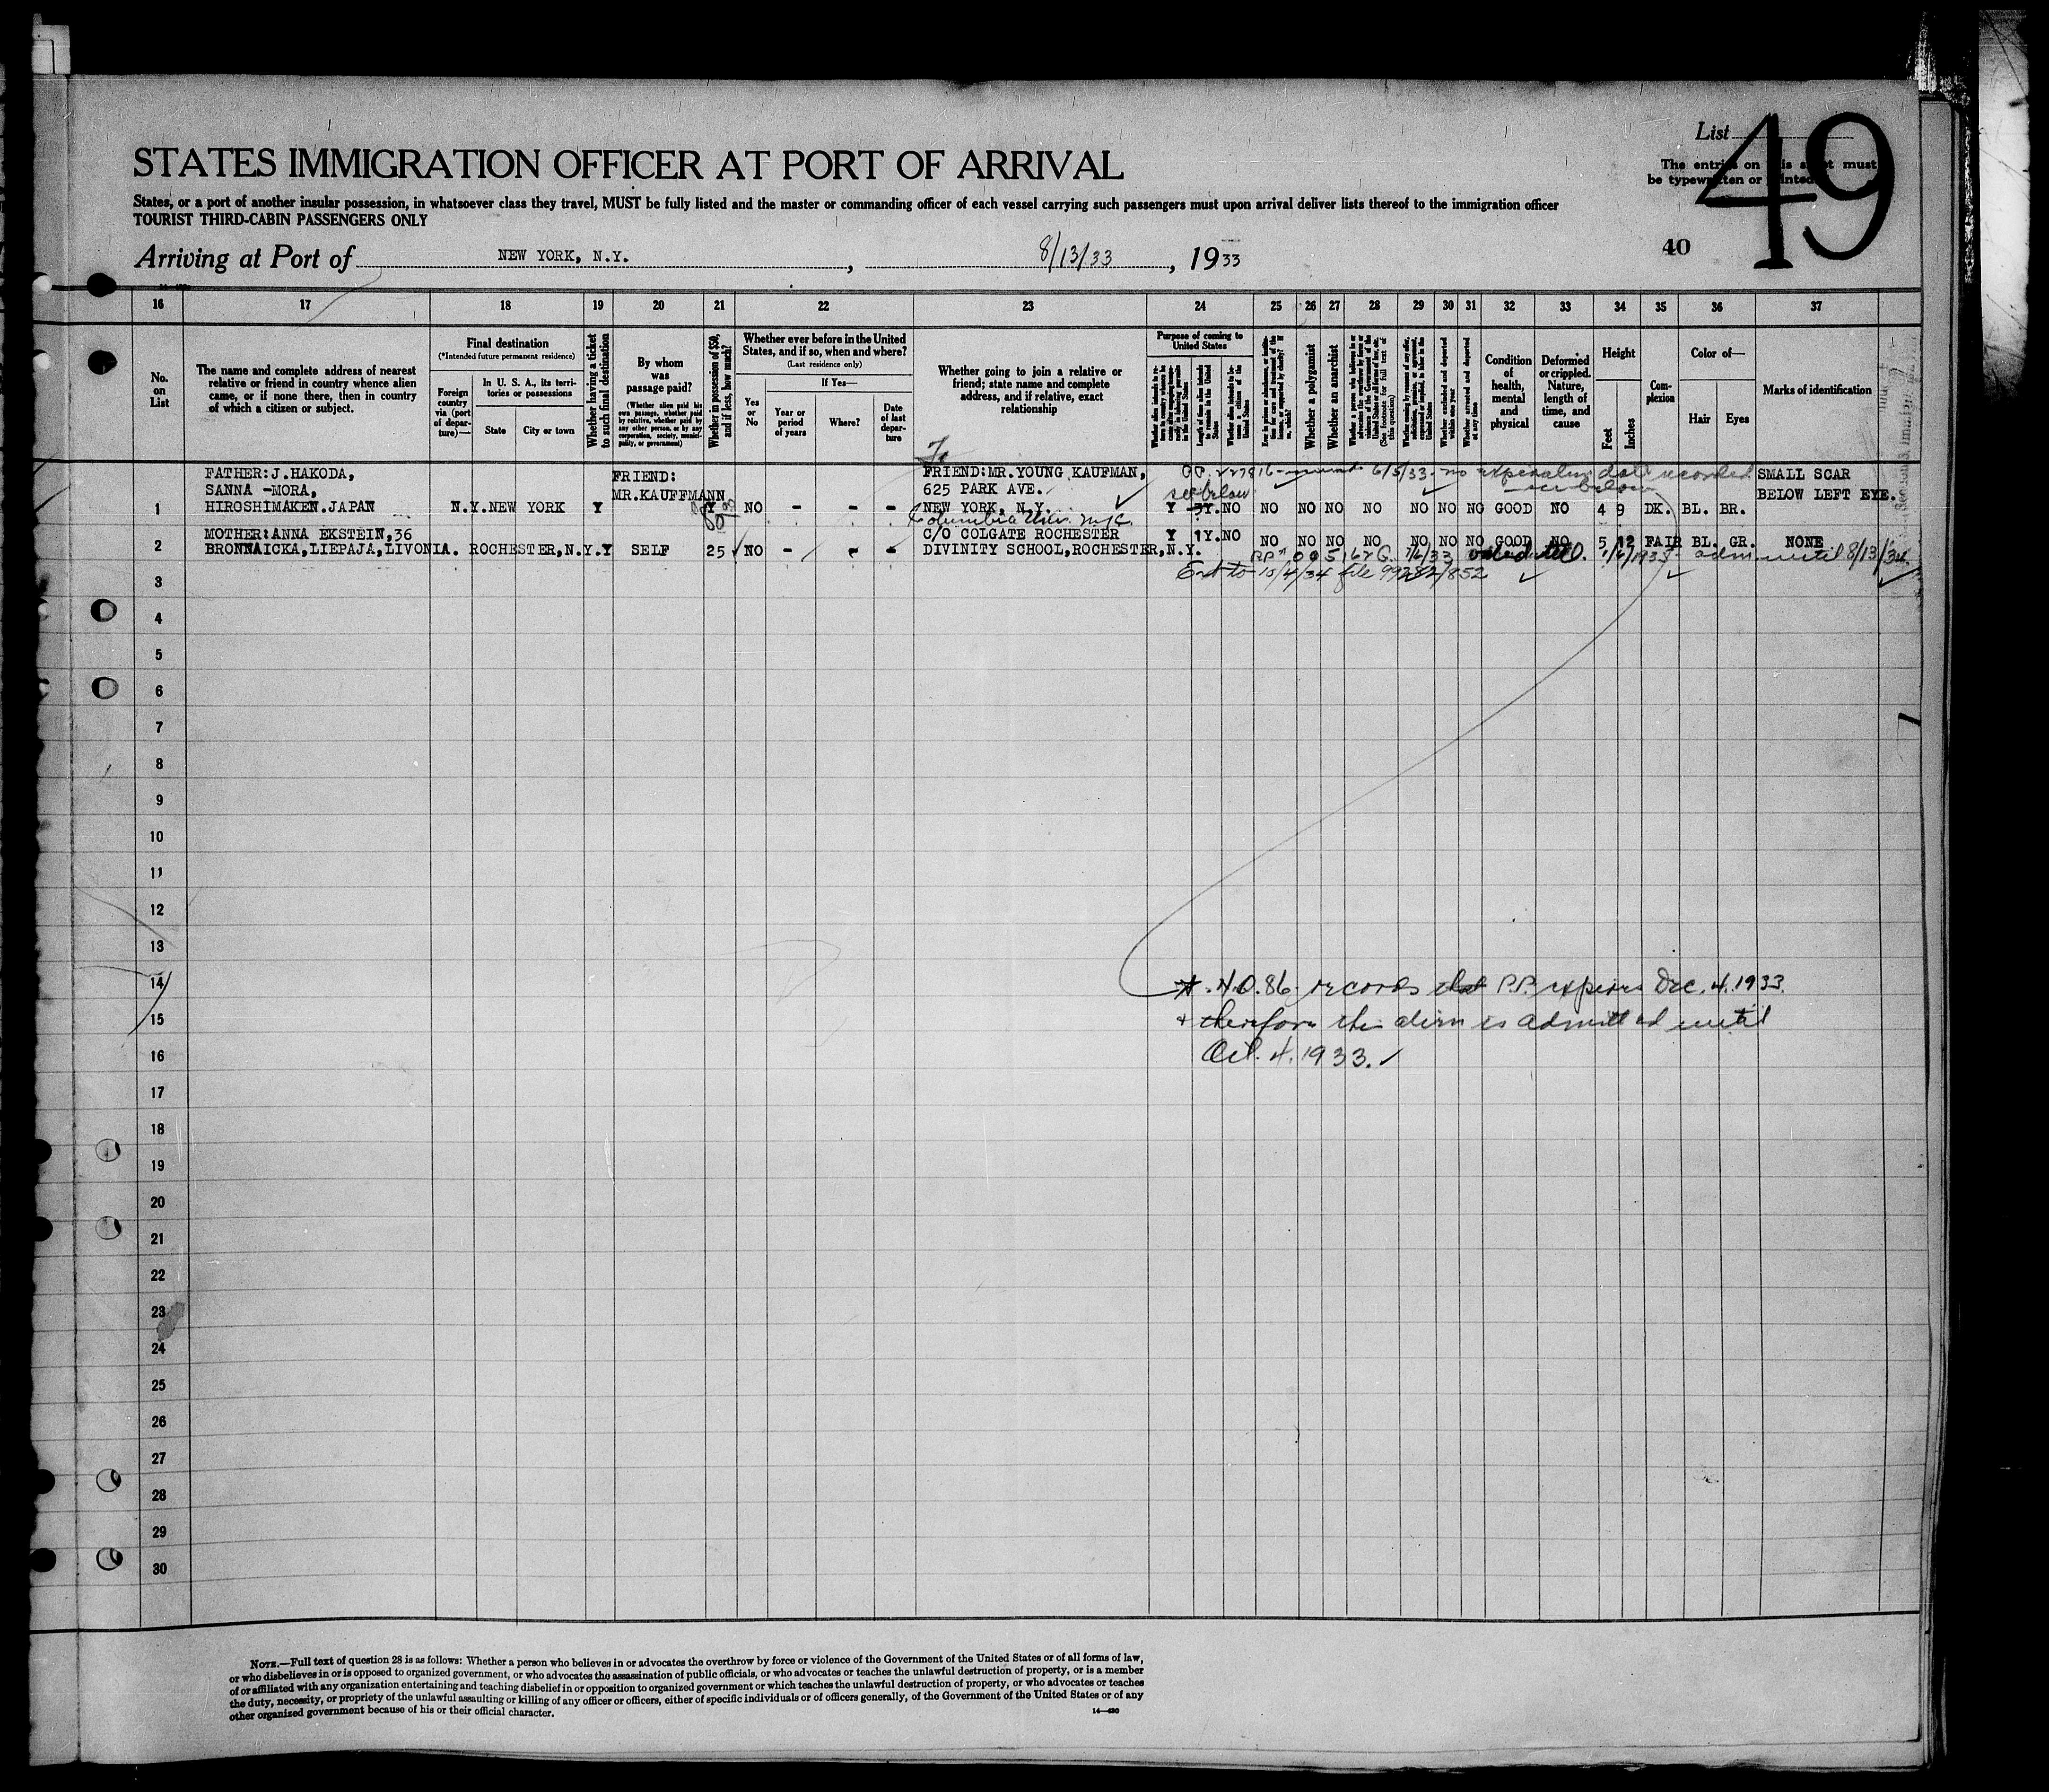 List 49
The entries on this sheet must
be typewritten or printed
STATES IMMIGRATION OFFICER AT PORT OF ARRIVAL
States, or a port of another insular possession, in whatsoever class they travel, MUST be fully listed and the master or commanding officer of each vessel carrying such passengers must upon arrival deliver lists thereof to the immigration officer
TOURIST THIRD-CABIN PASSENGERS ONLY
Arriving at Port of NEW YORK, N.Y., 8/13/33, 1933
40
16 17 18 19 20 21 22 23 24 25 26 27 28 29 30 31 32 33 34 35 36 37
No.
on
List
The name and complete address of nearest
relative or friend in country whence alien
came, or if none there, then in country
of which a citizen or subject.
Final destination
(*Intended future permanent residence)
Foreign
country
via (port
of depar-
ture)—
In U. S. A., its terri-
tories or possessions
State
City or town
Whether having a ticket
to such final destination
By whom
was
passage paid?
(Whether alien paid his
own passage, whether paid
by relative, whether paid by
any other person, or by any
corporation, society, munici-
pality, or government)
Whether in possession of $50,
and if less, how much?
Whether ever before in the United
States, and if so, when and where?
(Last residence only)
Yes
or
No
If Yes—
Year or
period
of years
Where?
Date
of last
depar-
ture
Whether going to join a relative or
friend; state name and complete
address, and if relative, exact
relationship
Purpose of coming to
United States
Length of time alien intends
to remain in the United
States
Whether alien intends to be-
come a citizen of the
United States
Whether a polygamist
Whether an anarchist
(See footnote for full text of
this question)
Whether arrested and deported
at any time
Condition
of
health,
mental
and
physical
Deformed
or crippled.
Nature,
length of
time, and
cause
Height
Feet
Inches
Com-
plexion
Color of—
Hair
Eyes
Marks of identification
FATHER:J.HAKODA, FRIEND: FRIEND:MR.YOUNG KAUFMAN, PP. 227816 6/5/33 no expiration date recorded SMALL SCAR
SANNA -MORA, MR.KAUFFMANN 625 PARK AVE. see below see below BELOW LEFT EYE.
1 HIROSHIMAKEN.JAPAN N.Y.NEW YORK Y Y NO - - - NEW YORK, N.Y. Y 3Y.NO NO NO NO NO NO NO NO GOOD NO 4 9 DK. BL. BR.
Columbia Univ. N.Y.C.
MOTHER:ANNA EKSTEIN,36 C/O COLGATE ROCHESTER Y 1Y.NO
2 BRONNAICKA,LIEPAJA,LIVONIA. ROCHESTER,N.Y.Y SELF 25 NO - - - DIVINITY SCHOOL,ROCHESTER,N.Y. NO NO NO NO NO NO NO GOOD NO 5 12 FAIR BL. GR. NONE
adm. until 8/13/34
3 Ext to 10/4/34 file 99282/852
4
5
6
7
8
9
10
11
12
13
14 * N.O.86 records that P.P. expires Dec. 4. 1933.
15 + therefore the alien is admitted until
16 Oct. 4. 1933.
17
18
19
20
21
22
23
24
25
26
27
28
29
30
NOTE.—Full text of question 28 is as follows: Whether a person who believes in or advocates the overthrow by force or violence of the Government of the United States or of all forms of law,
or who disbelieves in or is opposed to organized government, or who advocates the assassination of public officials, or who advocates or teaches the unlawful destruction of property, or is a member
of or affiliated with any organization entertaining and teaching disbelief in or opposition to organized government or which teaches the unlawful destruction of property, or who advocates or teaches
the duty, necessity, or propriety of the unlawful assaulting or killing of any officer or officers, either of specific individuals or of officers generally, of the Government of the United States or of any
other organized government because of his or their official character.
14—430